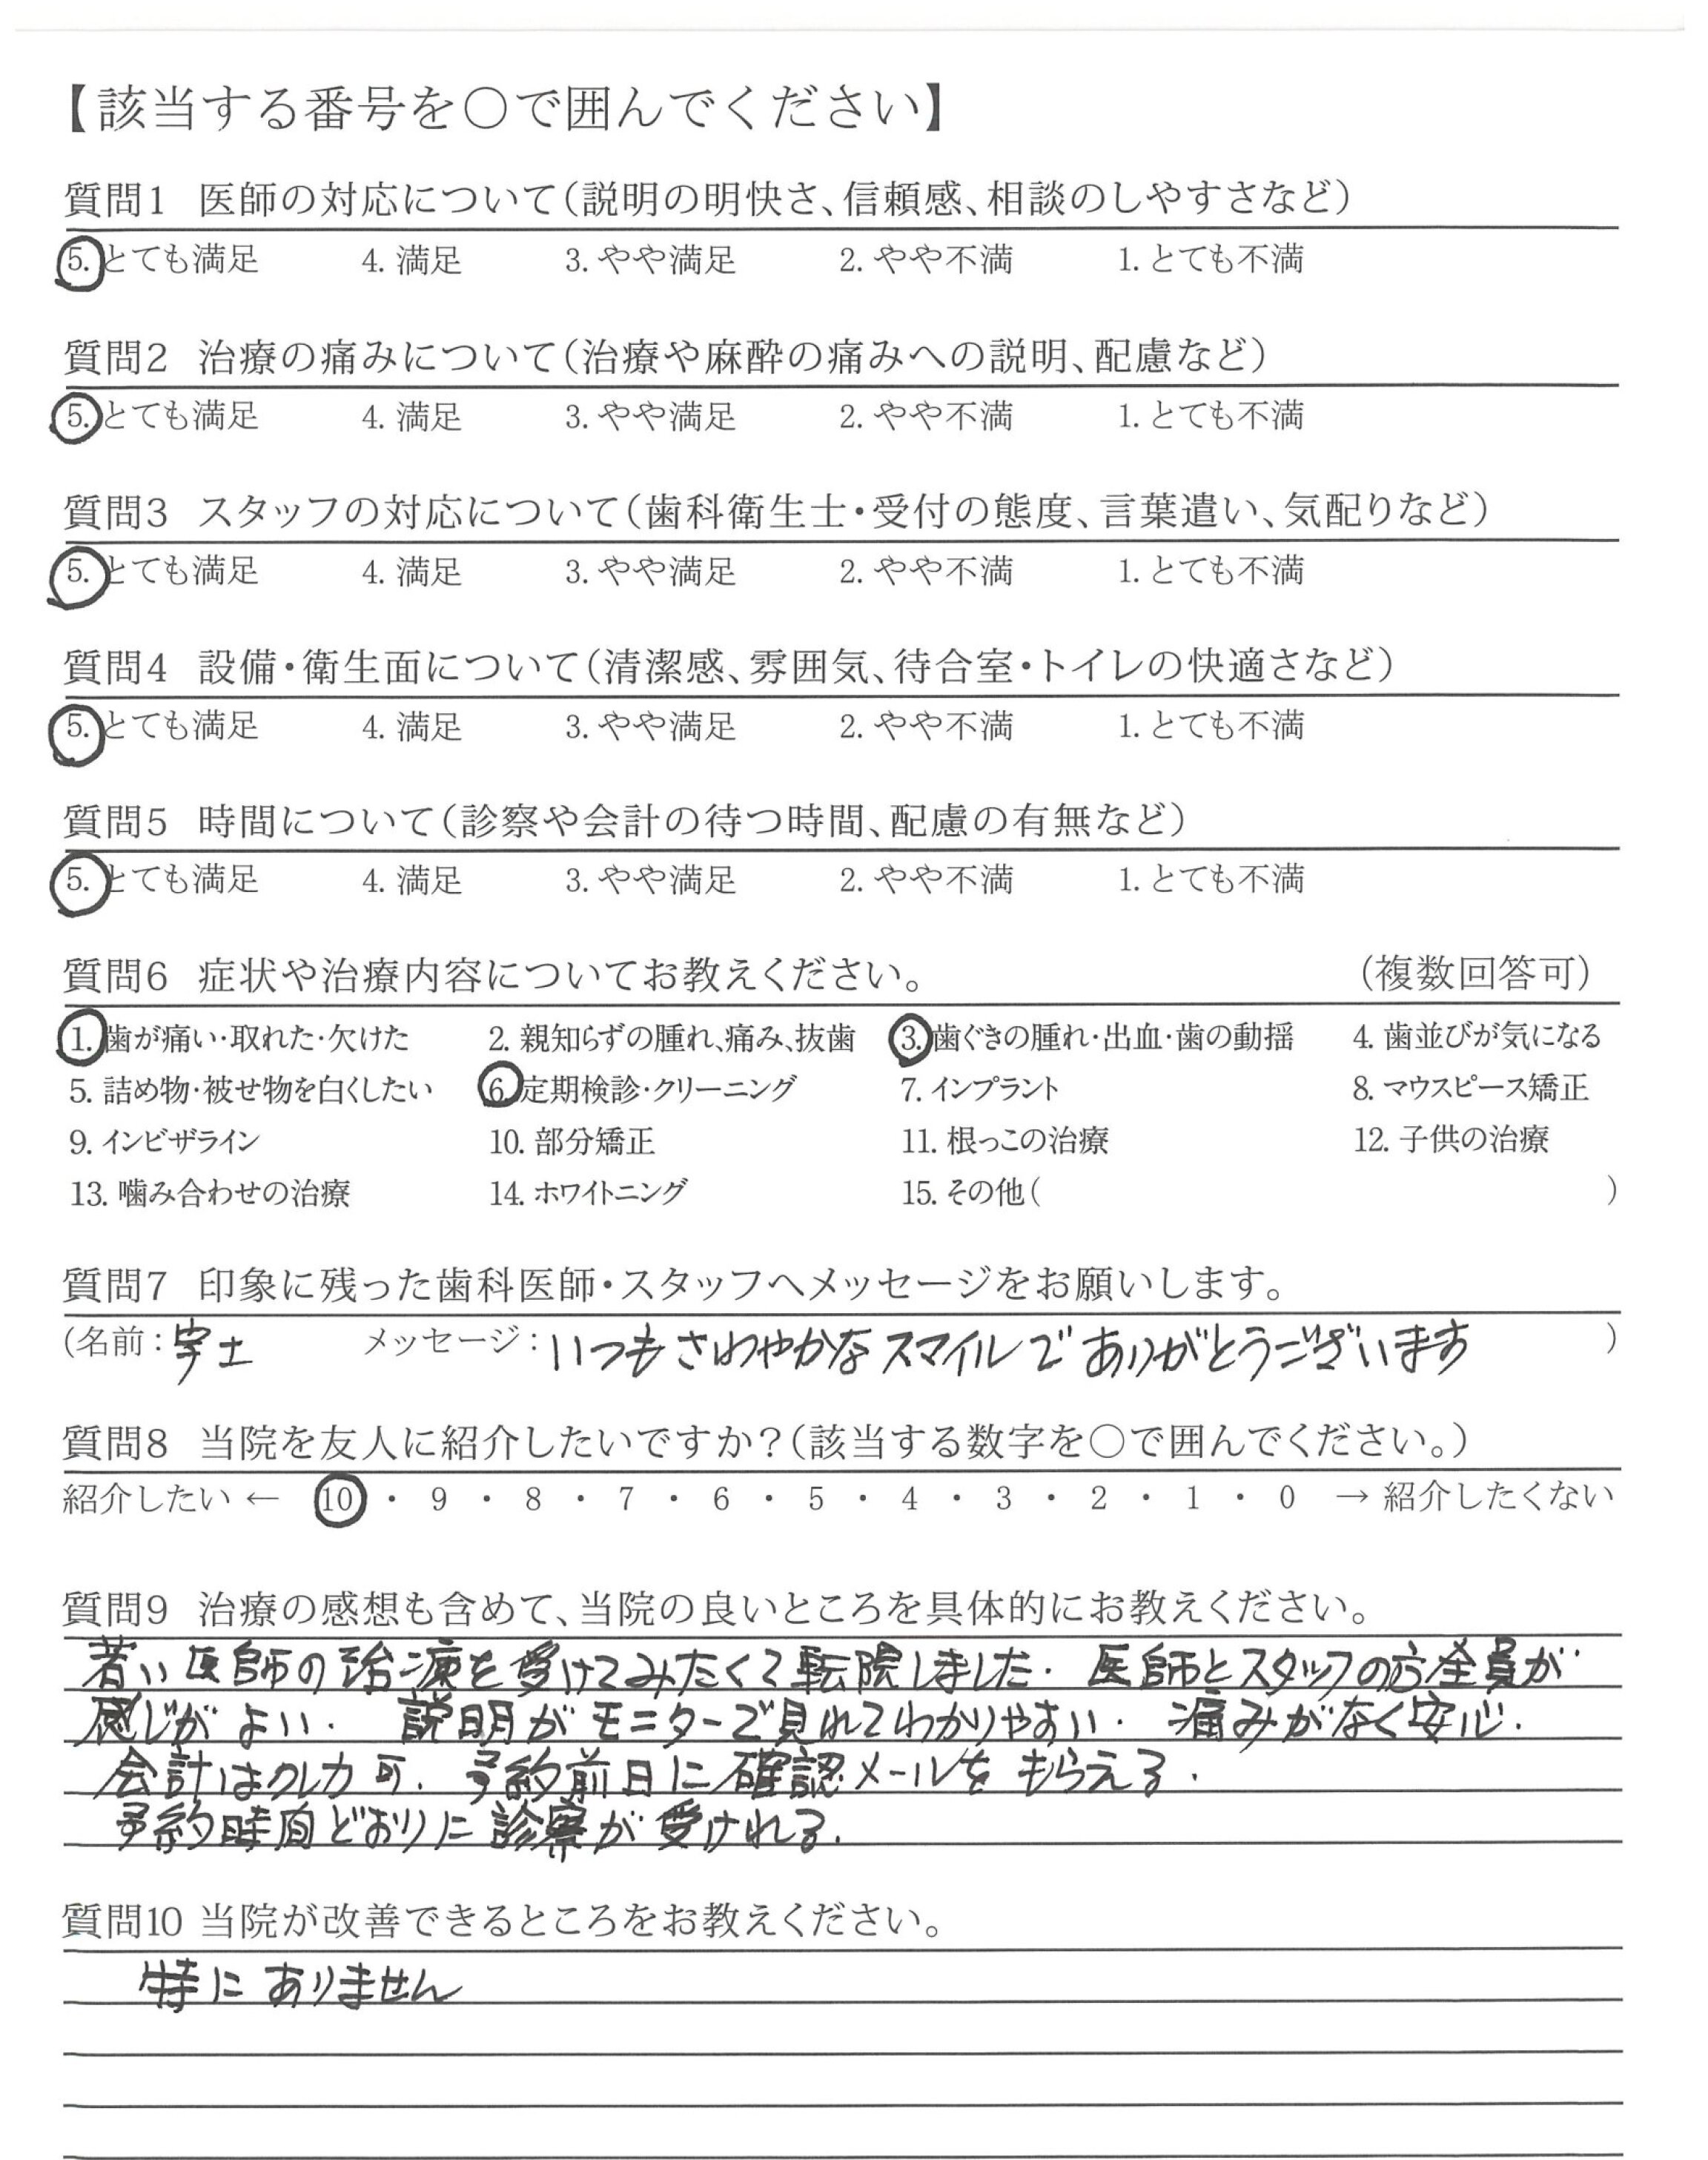 【該当する番号を○で囲んでください】
質問1 医師の対応について(説明の明快さ、信頼感、相談のしやすさなど)
5. とても満足 4. 満足 3. やや満足 2. やや不満 1. とても不満
質問2 治療の痛みについて(治療や麻酔の痛みへの説明、配慮など)
5. とても満足 4. 満足 3. やや満足 2. やや不満 1. とても不満
質問3 スタッフの対応について(歯科衛生士・受付の態度、言葉遣い、気配りなど)
5. とても満足 4. 満足 3. やや満足 2. やや不満 1. とても不満
質問4 設備・衛生面について(清潔感、雰囲気、待合室・トイレの快適さなど)
5. とても満足 4. 満足 3. やや満足 2. やや不満 1. とても不満
質問5 時間について(診察や会計の待つ時間、配慮の有無など)
5. とても満足 4. 満足 3. やや満足 2. やや不満 1. とても不満
質問6 症状や治療内容についてお教えください。 (複数回答可)
1. 歯が痛い・取れた・欠けた 2. 親知らずの腫れ、痛み、抜歯 3. 歯ぐきの腫れ・出血・歯の動揺 4. 歯並びが気になる
5. 詰め物・被せ物を白くしたい 6. 定期検診・クリーニング 7. インプラント 8. マウスピース矯正
9. インビザライン 10. 部分矯正 11. 根っこの治療 12. 子供の治療
13. 噛み合わせの治療 14. ホワイトニング 15. その他( )
質問7 印象に残った歯科医師・スタッフへメッセージをお願いします。
(名前: 宇土 メッセージ: いつもさわやかなスマイルでありがとうございます )
質問8 当院を友人に紹介したいですか?(該当する数字を○で囲んでください。)
紹介したい ← 10 ・ 9 ・ 8 ・ 7 ・ 6 ・ 5 ・ 4 ・ 3 ・ 2 ・ 1 ・ 0 → 紹介したくない
質問9 治療の感想も含めて、当院の良いところを具体的にお教えください。
若い医師の治療を受けてみたくて転院しました. 医師とスタッフの方全員が
感じがよい. 説明がモニターで見れてわかりやすい. 痛みがなく安心.
会計はクレカ可. 予約前日に確認メールをもらえる.
予約時間どおりに診察が受けれる.
質問10 当院が改善できるところをお教えください。
特にありません